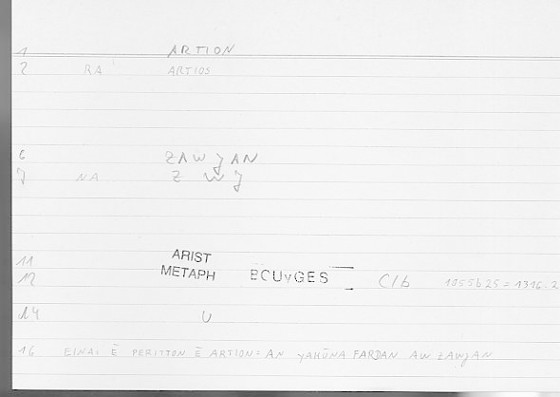 1 ARTION
2 RA ARTIOS
6 ZAWǧAN
7 NA Z W ǧ
11 ARIST
12 METAPH BOUyGES C/b 1055b25=1316.2
14 U
16 EINAI Ē PERITTON Ē ARTION: AN yAKŪNA FARDAN AW ZAWǧAN